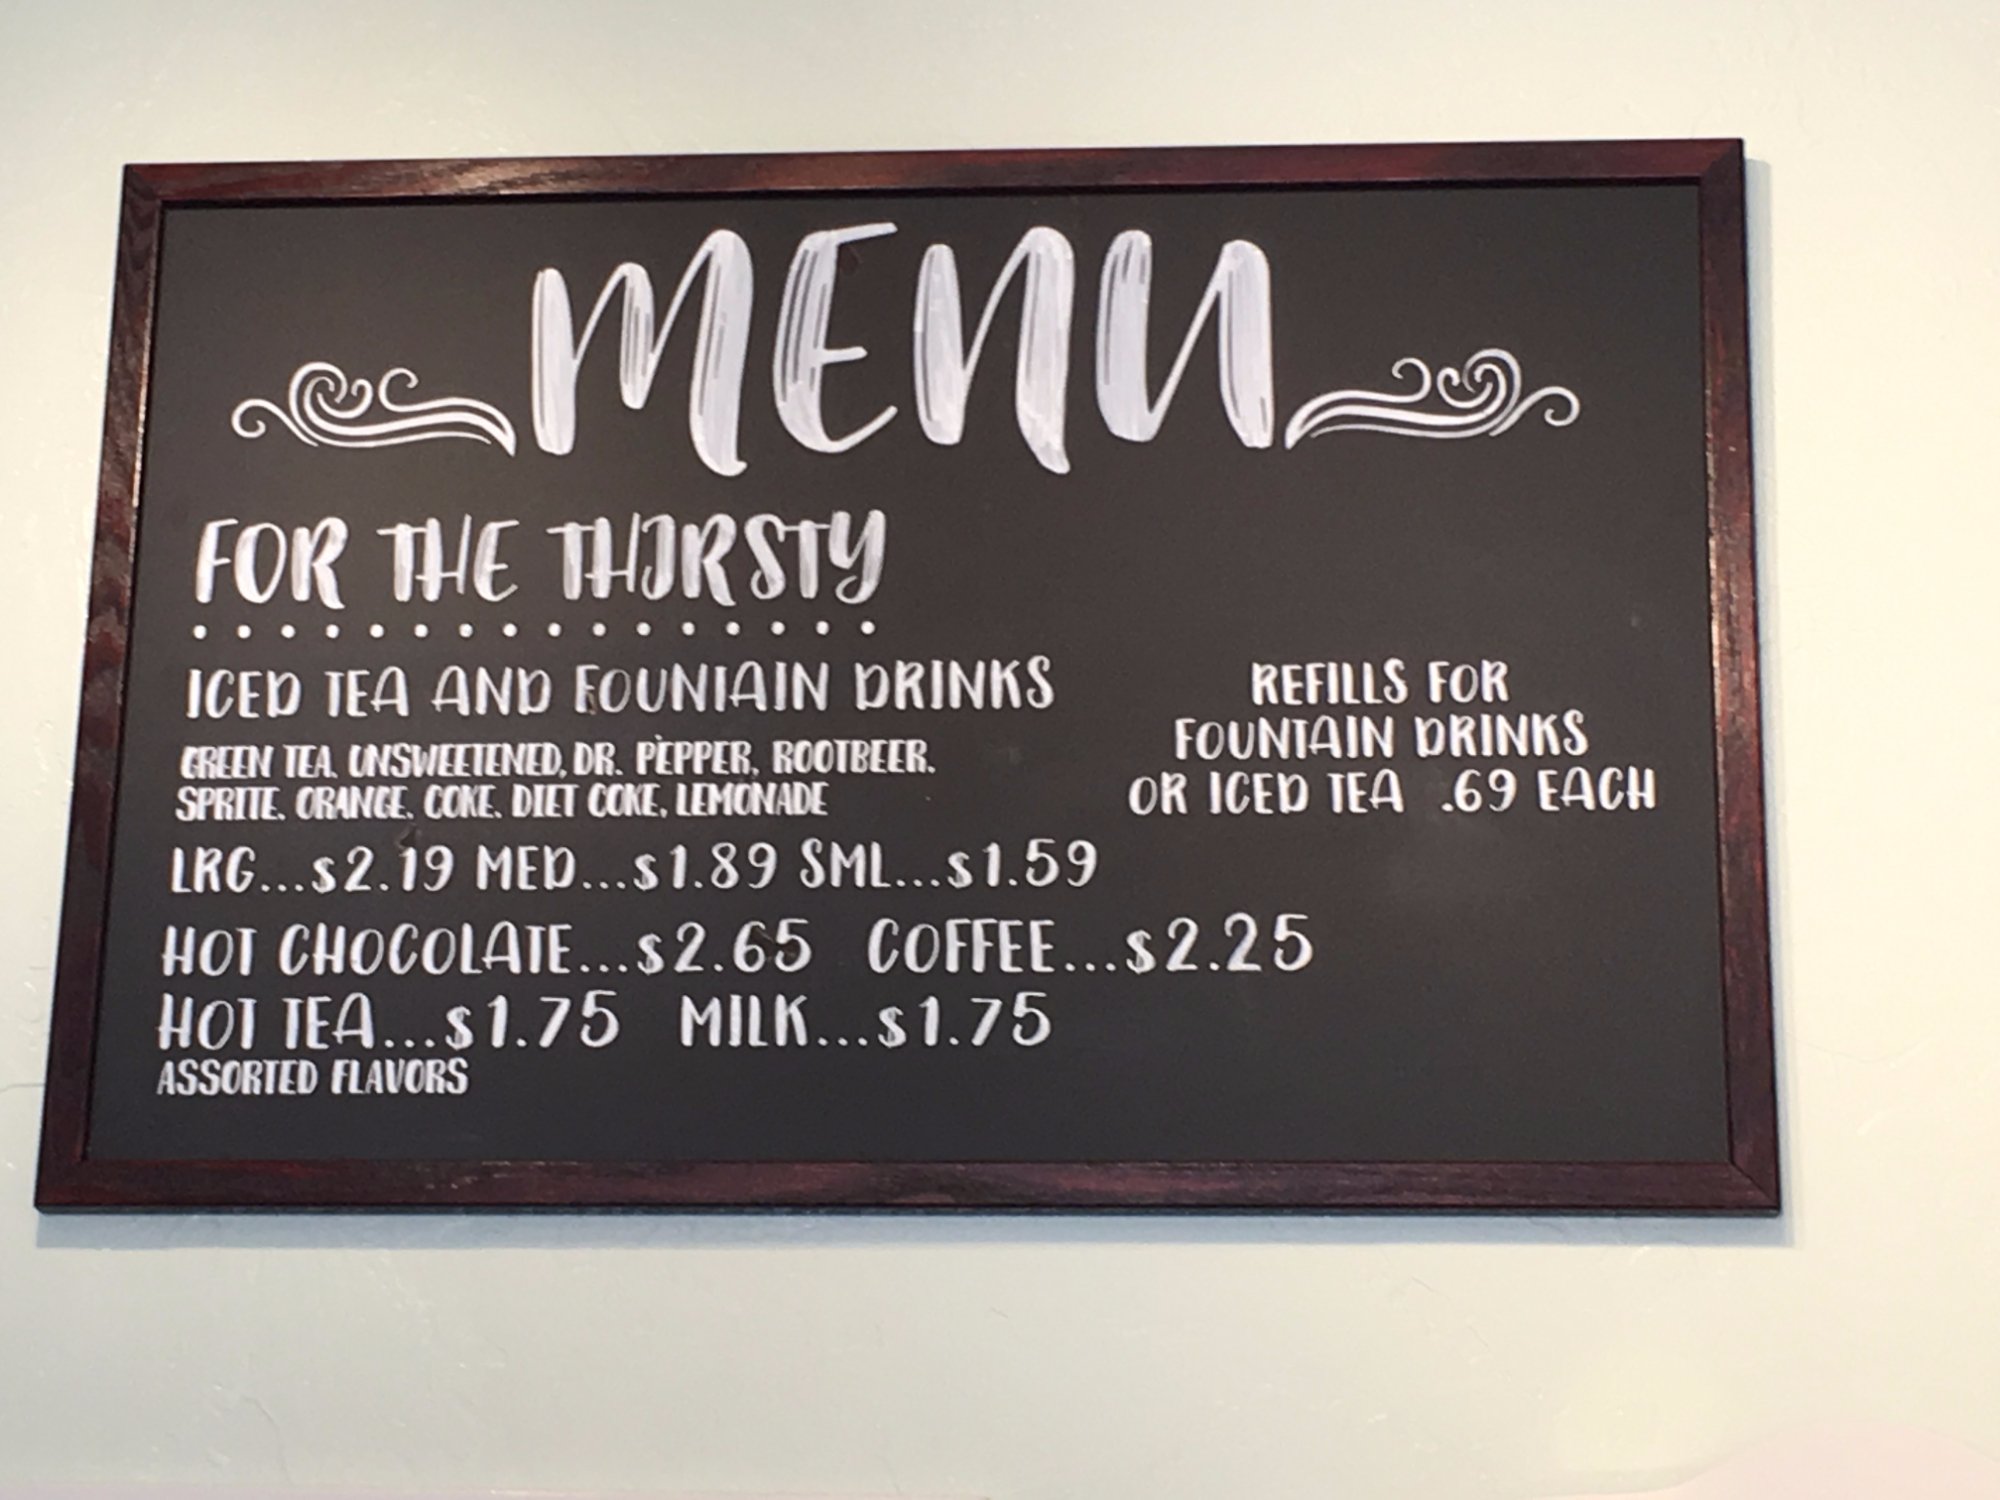 MENU
FOR THE THIRSTY
ICED TEA AND FOUNTAIN DRINKS
GREEN TEA, UNSWEETENED, DR. PEPPER, ROOTBEER,
SPRITE, ORANGE, COKE, DIET COKE, LEMONADE
LRG...$2.19 MED...$1.89 SML...$1.59
REFILLS FOR
FOUNTAIN DRINKS
OR ICED TEA .69 EACH
HOT CHOCOLATE...$2.65 COFFEE...$2.25
HOT TEA...$1.75 MILK...$1.75
ASSORTED FLAVORS